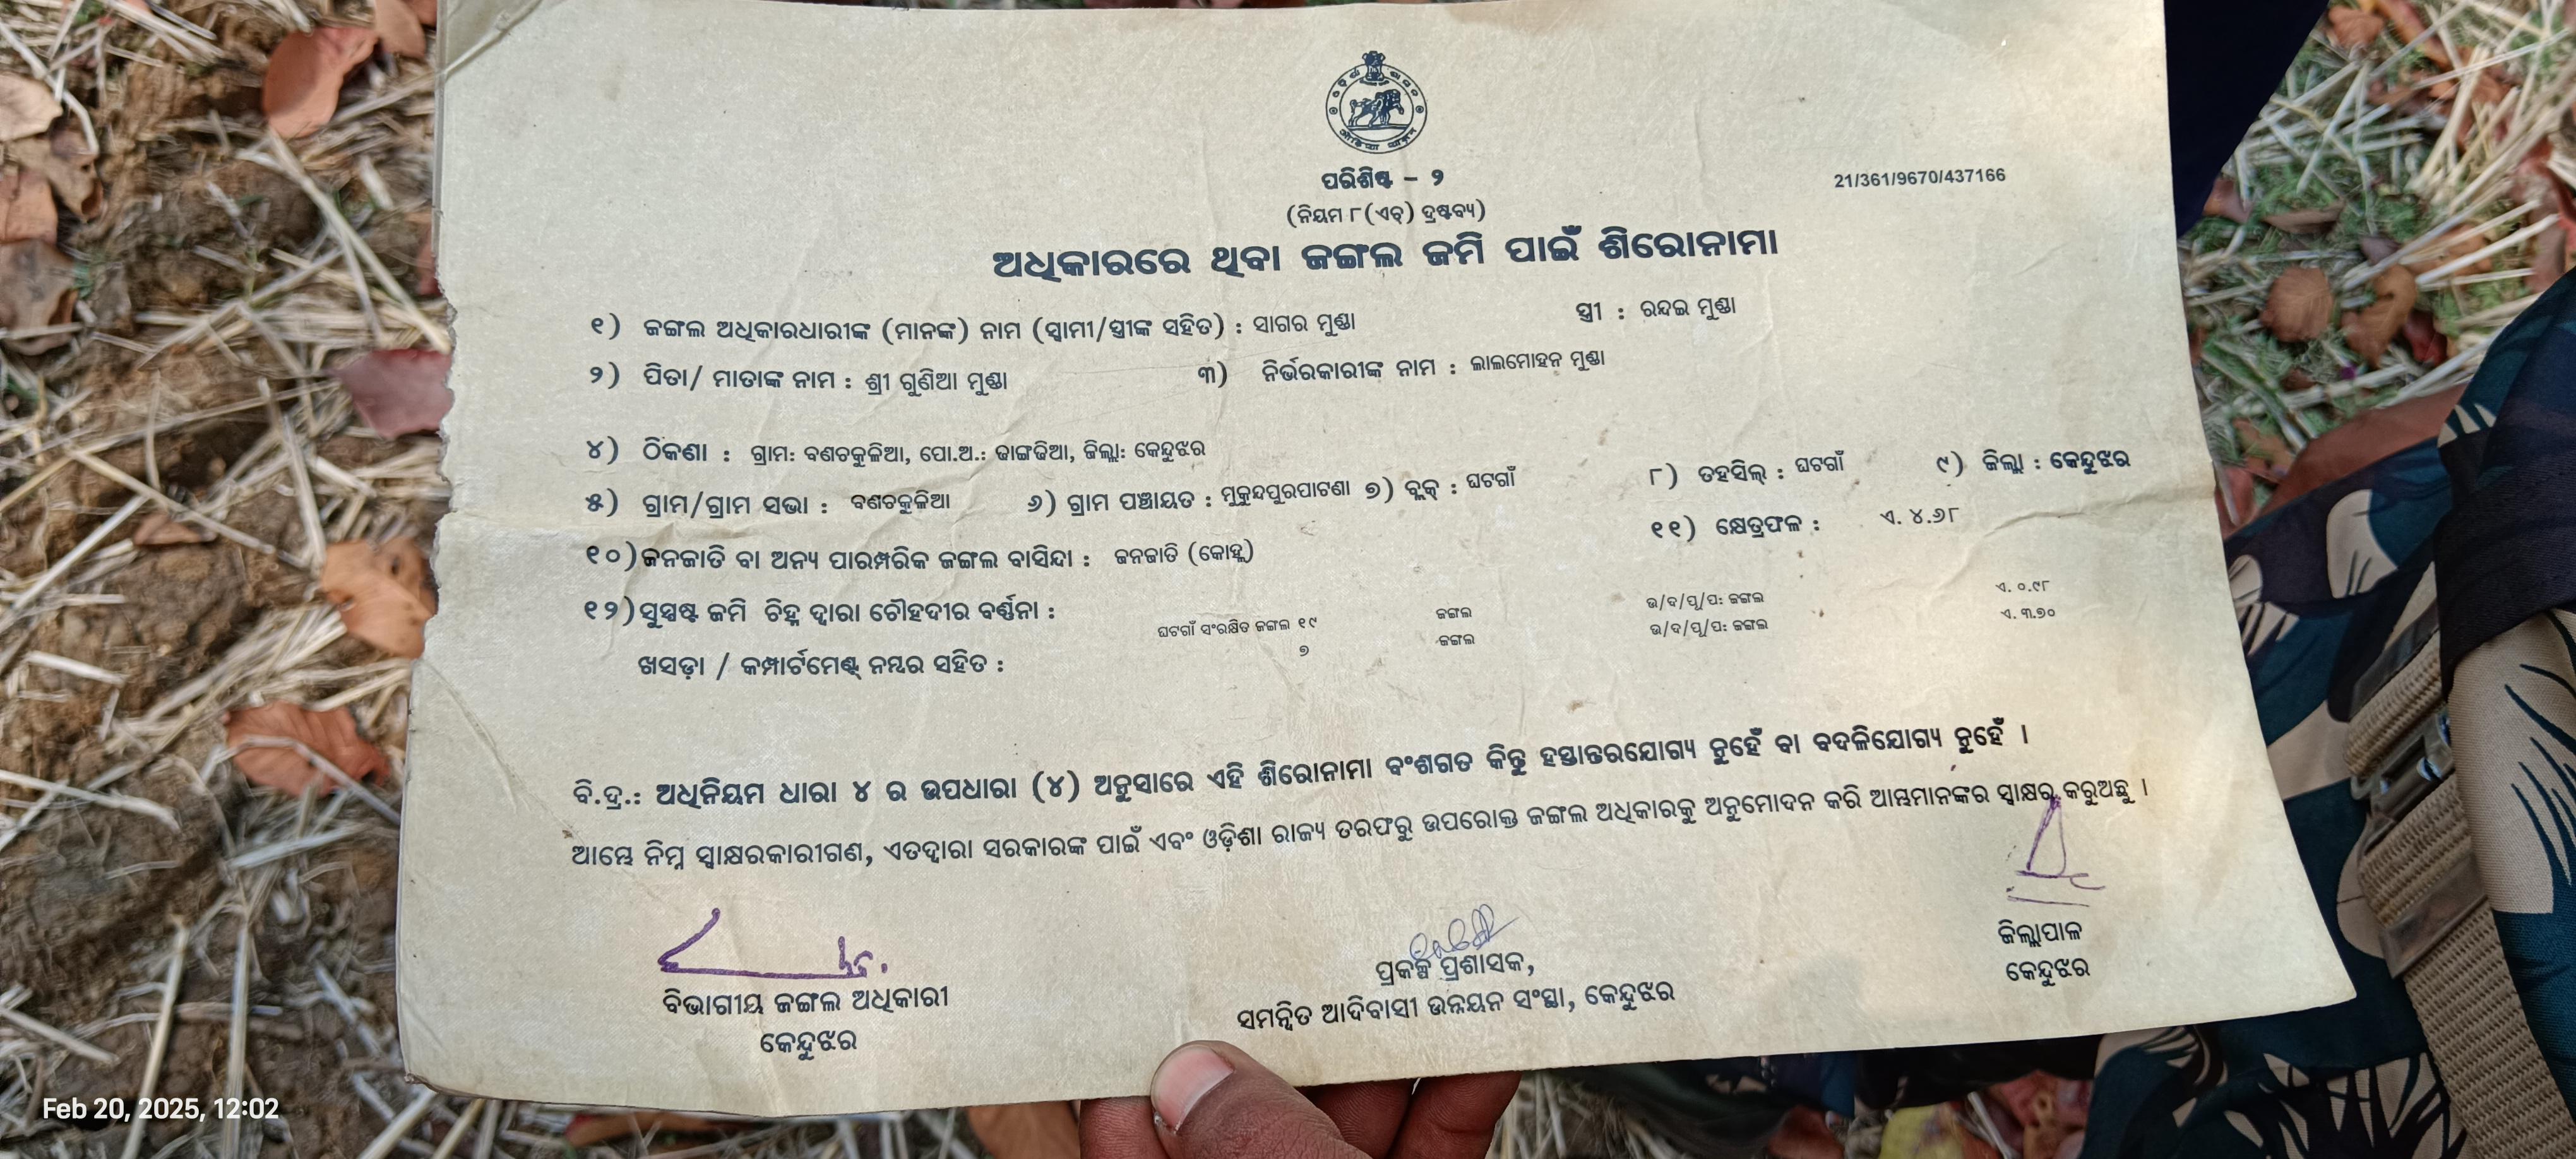 ପରିଶିଷ୍ଟ - ୨
21/361/9670/437166
(ନିୟମ ୮(ଏଚ୍) ଦ୍ରଷ୍ଟବ୍ୟ)
ଅଧିକାରରେ ଥିବା ଜଙ୍ଗଲ ଜମି ପାଇଁ ଶିରୋନାମା
୧) ଜଙ୍ଗଲ ଅଧିକାରଧାରୀଙ୍କ (ମାନଙ୍କ) ନାମ (ସ୍ୱାମୀ/ସ୍ତ୍ରୀଙ୍କ ସହିତ) : ସାଗର ମୁଣ୍ଡା ସ୍ତ୍ରୀ : ରନ୍ଦଇ ମୁଣ୍ଡା
୨) ପିତା/ ମାତାଙ୍କ ନାମ : ଶ୍ରୀ ଗୁଣିଆ ମୁଣ୍ଡା ୩) ନିର୍ଭରକାରୀଙ୍କ ନାମ : ଲାଲମୋହନ ମୁଣ୍ଡା
୪) ଠିକଣା : ଗ୍ରାମ: ବଣଚକୁଳିଆ, ପୋ.ଅ.: ଢାଙ୍ଗଢିଆ, ଜିଲ୍ଲା: କେନ୍ଦୁଝର
୫) ଗ୍ରାମ/ଗ୍ରାମ ସଭା : ବଣଚକୁଳିଆ ୬) ଗ୍ରାମ ପଞ୍ଚାୟତ : ମୁକୁନ୍ଦପୁରପାଟଣା ୭) ବ୍ଲକ୍ : ଘଟଗାଁ ୮) ତହସିଲ୍ : ଘଟଗାଁ ୯) ଜିଲ୍ଲା : କେନ୍ଦୁଝର
୧୦) ଜନଜାତି ବା ଅନ୍ୟ ପାରମ୍ପରିକ ଜଙ୍ଗଲ ବାସିନ୍ଦା : ଜନଜାତି (କୋହ୍ଲ) ୧୧) କ୍ଷେତ୍ରଫଳ : ଏ. ୪.୬୮
୧୨) ସୁସ୍ପଷ୍ଟ ଜମି ଚିହ୍ନ ଦ୍ୱାରା ଚୌହଦୀର ବର୍ଣ୍ଣନା :
ଘଟଗାଁ ସଂରକ୍ଷିତ ଜଙ୍ଗଲ ୧୯ ଜଙ୍ଗଲ ଉ/ଦ/ପୂ/ପ: ଜଙ୍ଗଲ ଏ. ୦.୯୮
୭ ଜଙ୍ଗଲ ଉ/ଦ/ପୂ/ପ: ଜଙ୍ଗଲ ଏ. ୩.୭୦
ଖସଡ଼ା / କମ୍ପାର୍ଟମେଣ୍ଟ୍ ନମ୍ବର ସହିତ :
ବି.ଦ୍ର.: ଅଧିନିୟମ ଧାରା ୪ ର ଉପଧାରା (୪) ଅନୁସାରେ ଏହି ଶିରୋନାମା ବଂଶଗତ କିନ୍ତୁ ହସ୍ତାନ୍ତରଯୋଗ୍ୟ ନୁହେଁ ବା ବଦଳିଯୋଗ୍ୟ ନୁହେଁ ।
ଆମ୍ଭେ ନିମ୍ନ ସ୍ୱାକ୍ଷରକାରୀଗଣ, ଏତଦ୍ୱାରା ସରକାରଙ୍କ ପାଇଁ ଏବଂ ଓଡ଼ିଶା ରାଜ୍ୟ ତରଫରୁ ଉପରୋକ୍ତ ଜଙ୍ଗଲ ଅଧିକାରକୁ ଅନୁମୋଦନ କରି ଆମ୍ଭମାନଙ୍କର ସ୍ୱାକ୍ଷର କରୁଅଛୁ ।
ବିଭାଗୀୟ ଜଙ୍ଗଲ ଅଧିକାରୀ
କେନ୍ଦୁଝର
ପ୍ରକଳ୍ପ ପ୍ରଶାସକ,
ସମନ୍ୱିତ ଆଦିବାସୀ ଉନ୍ନୟନ ସଂସ୍ଥା, କେନ୍ଦୁଝର
ଜିଲ୍ଲାପାଳ
କେନ୍ଦୁଝର
Feb 20, 2025, 12:02